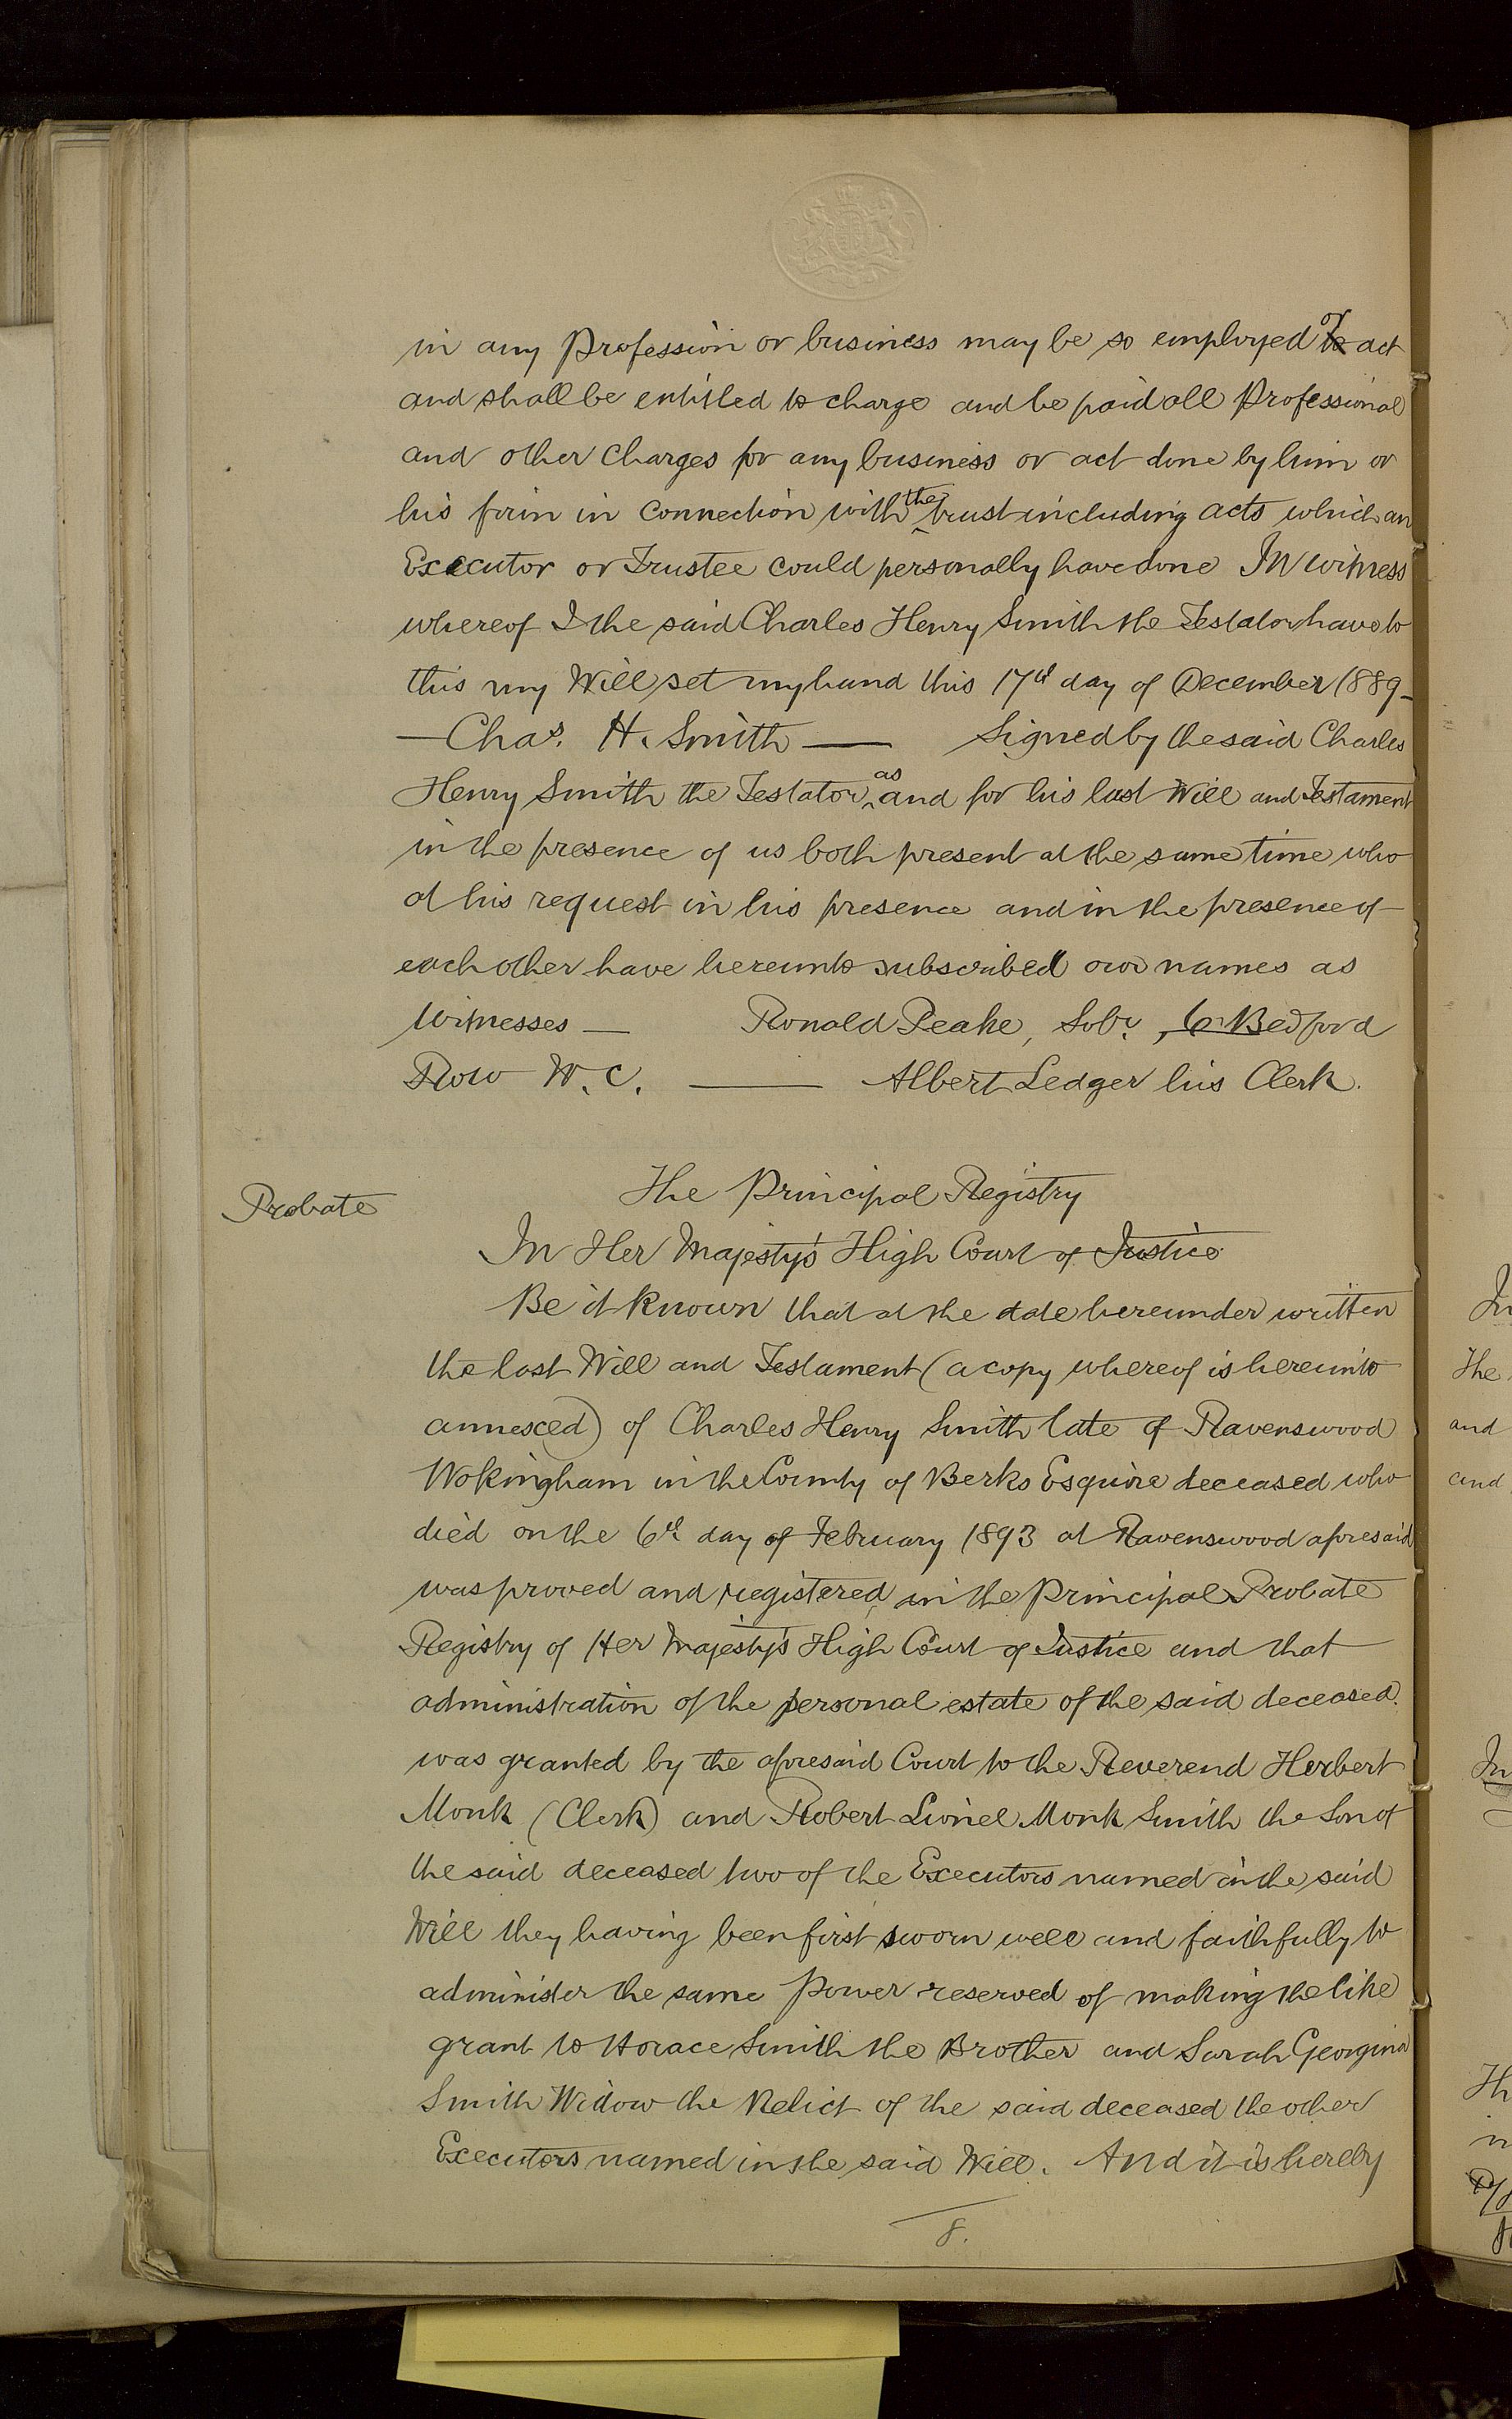 in any Profession or business may be so employed or act
and shall be entitled to charge and be paid all Professional
and other Charges for any business or act done by him or
his firm in Connection with the trust including acts which an
Executor or Trustee could personally have done In witness
whereof I the said Charles Henry Smith the Testator have to
this my Will set my hand this 17th day of December 1889 —
— Chas. H. Smith — Signed by the said Charles
Henry Smith the Testator as and for his last Will and Testament
in the presence of us both present at the same time who
at his request in his presence and in the presence of
each other have hereunto subscribed our names as
Witnesses — Ronald Peake, Solr., 6 Bedford
Row W.C. — Albert Ledger his Clerk.
The Principal Registry
Probate
In Her Majesty's High Court of Justice
Be it known that at the date hereunder written
the last Will and Testament (a copy whereof is hereunto
annexed) of Charles Henry Smith late of Ravenswood
Wokingham in the County of Berks Esquire deceased who
died on the 6th day of February 1893 at Ravenswood aforesaid
was proved and registered in the Principal Probate
Registry of Her Majesty's High Court of Justice and that
administration of the personal estate of the said deceased
was granted by the aforesaid Court to the Reverend Herbert
Monk (Clerk) and Robert Lionel Monk Smith the Son of
the said deceased two of the Executors named in the said
Will they having been first sworn well and faithfully to
administer the same Power reserved of making the like
grant to Horace Smith the Brother and Sarah Georgina
Smith Widow the Relict of the said deceased the other
Executors named in the said Will. And it is hereby
8.
In
The
and
and
In
Th